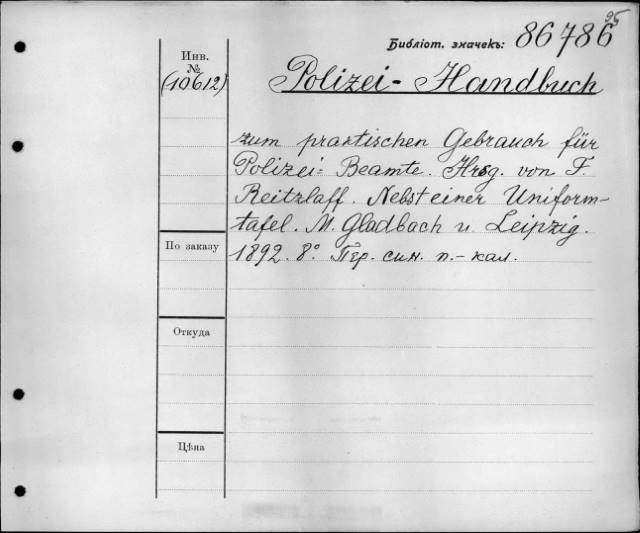 95
Библіот. значекъ: 86786
Инв.
№
(10612)
Polizei-Handbuch
zum praktischen Gebrauch für
Polizei-Beamte. Hrsg. von F.
Reitzlaff. Nebst einer Uniform-
tafel. M. Gladbach u. Leipzig.
1892. 8° Пер. син. п.-кал.
По заказу
Откуда
Цѣна